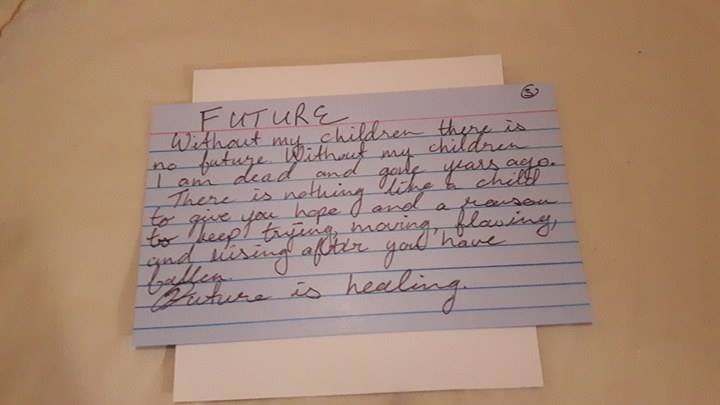 3
FUTURE
Without my children there is
no future. Without my children
I am dead and gone years ago.
There is nothing like a child
to give you hope and a reason
to keep trying, moving, flowing,
and rising after you have
fallen.
Future is healing.